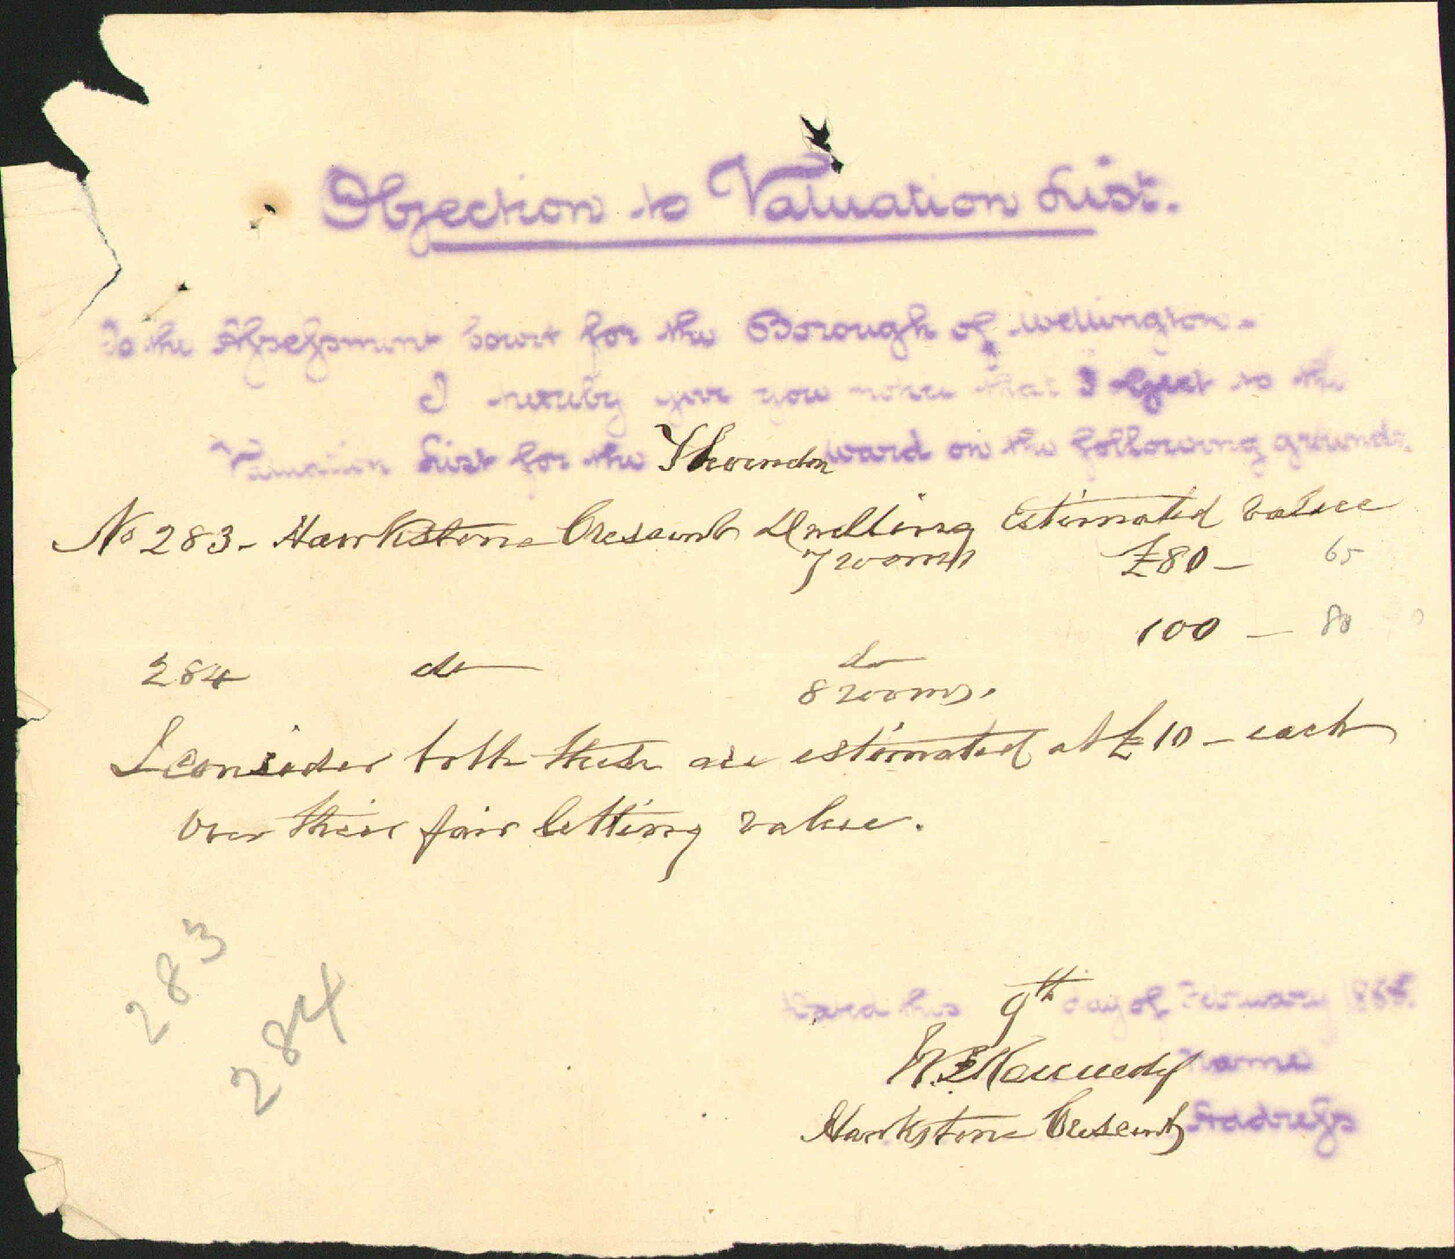 Objection to Valuation List.
To the Assessment Court for the Borough of Wellington.
I hereby give you notice that I object to the
Valuation List for the Thorndon ward on the following grounds.
No 283 - Hawkstone Crescent Dwelling Estimated value
7 rooms £80 - 65
100 - 80
284 do do
8 rooms.
I consider both these are estimated at £10 - each
over their fair letting value.
283
284
Dated this 9th day of February 188
Kennedy Name
Hawkstone Crescent Address